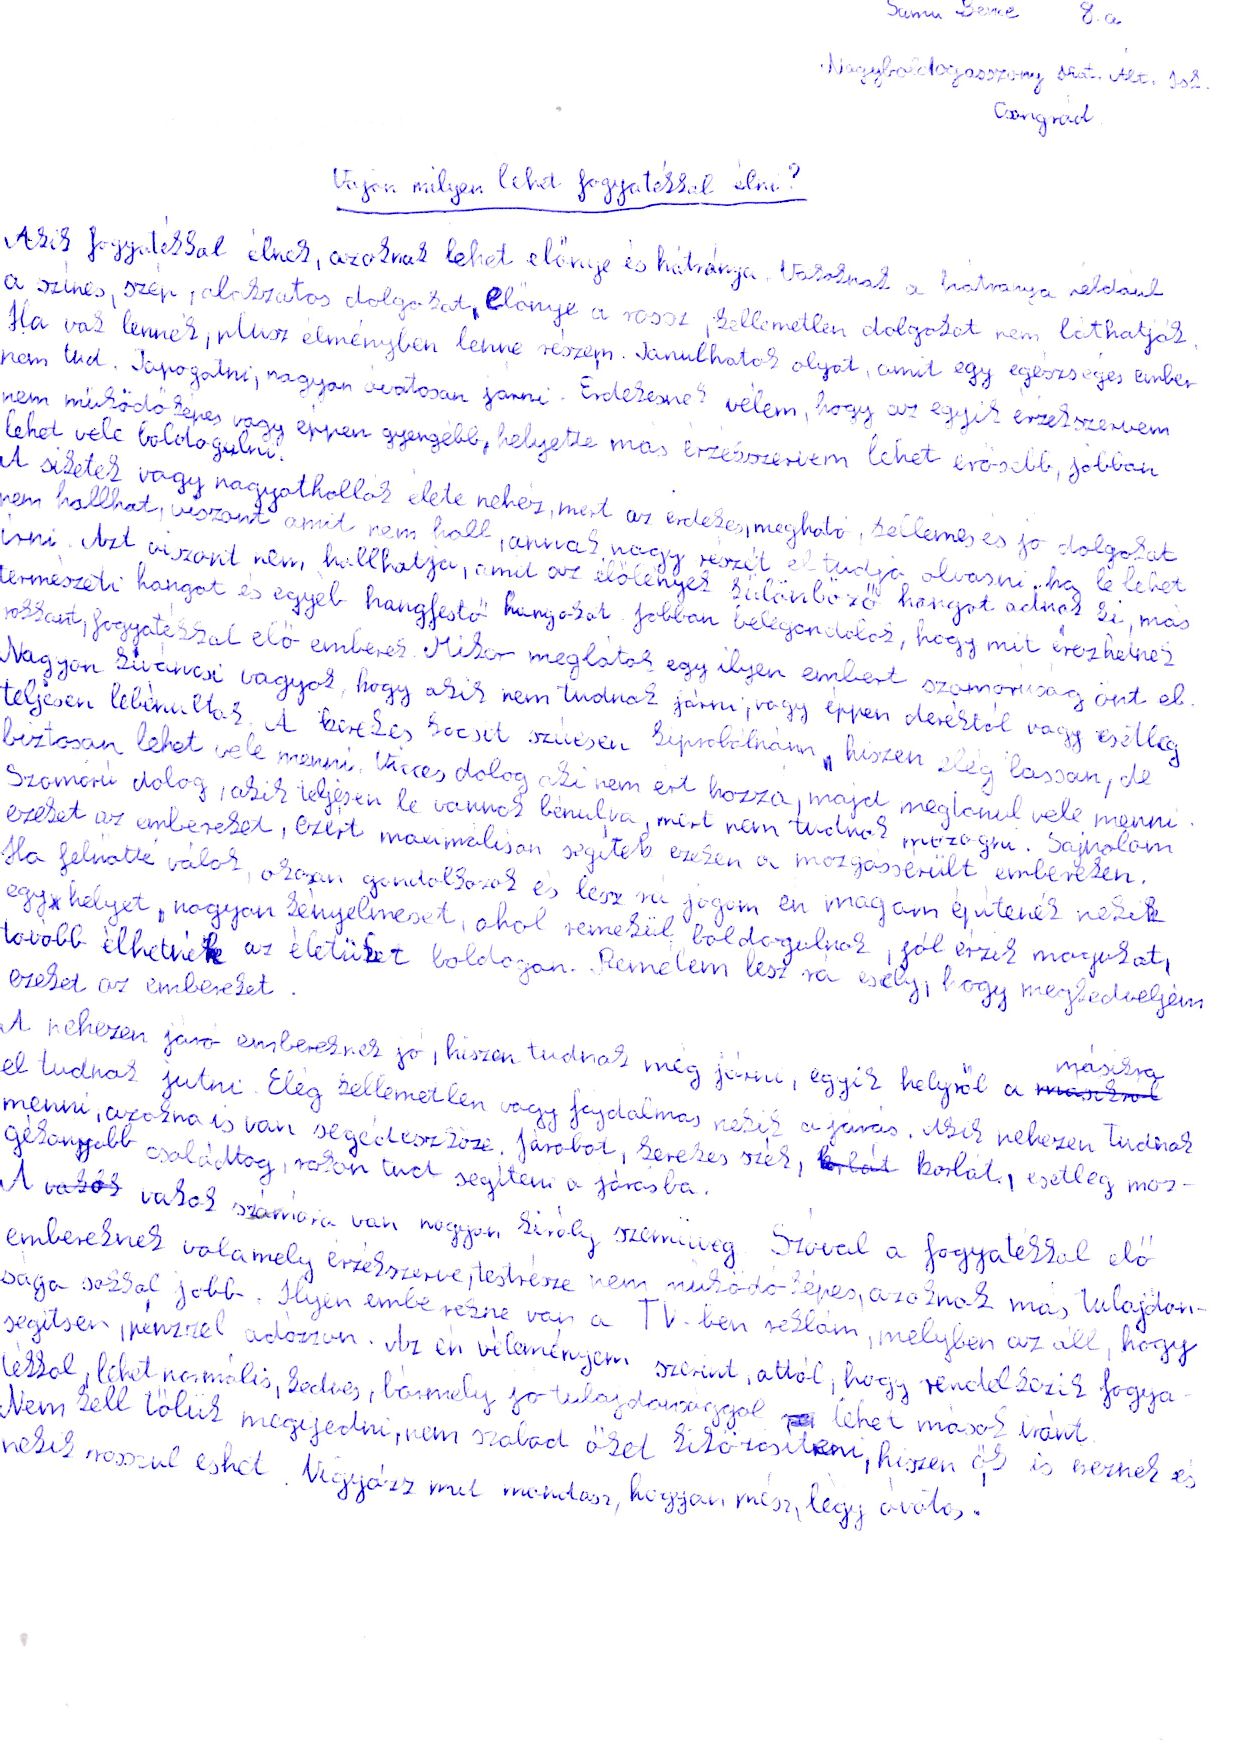 Samu Bence 8. a
Nagyboldogasszony Kat. Ált. Isk.
Csongrád
Vajon milyen lehet fogyatékkal élni?
Akik fogyatékkal élnek, azoknak lehet előnye és hátránya. Vakoknak a hátránya például
a színes, szép, alakzatos dolgokat, előnye a rossz, kellemetlen dolgokat nem láthatják.
Ha vak lennék, plusz élményben lenne részem. Tanulhatok olyat, amit egy egészséges ember
nem tud. Tapogatni, nagyon óvatosan járni. Érdekesnek vélem, hogy az egyik érzékszervem
nem működőképes vagy éppen gyengébb, helyette más érzékszervem lehet erősebb, jobban
lehet vele boldogulni.
A siketek vagy nagyothallók élete nehéz, mert az érdekes, megható, kellemes és jó dolgokat
nem hallhat, viszont amit nem hall, annak nagy részét el tudja olvasni, ha le lehet
írni. Azt viszont nem hallhatja, amit az élőlények különböző hangot adnak ki, más
természeti hangot és egyéb hangfestő hangokat. Jobban belegondolok, hogy mit érezhetnek
rokkant, fogyatékkal élő emberek. Mikor meglátok egy ilyen embert szomorúság önt el.
Nagyon kíváncsi vagyok, hogy akik nem tudnak járni, vagy éppen deréktól vagy esetleg
teljesen lebénultak. A kerekes kocsit szívesen kipróbálnám, hiszen elég lassan, de
biztosan lehet vele menni. Vicces dolog aki nem ért hozzá, majd megtanul vele menni.
Szomorú dolog, akik teljesen le vannak bénulva, mert nem tudnak mozogni. Sajnálom
ezeket az embereket, ezért maximálisan segítek ezeken a mozgássérült embereken.
Ha felnőtté válok, okosan gondolkozok és lesz rá jogom én magam építenék nekik
egy helyet, nagyon kényelmeset, ahol remekül boldogulnak, jól érzik magukat,
tovább élhetnék az életüket boldogan. Remélem lesz rá esély, hogy megkedveljem
ezeket az embereket.
A nehezen járó embereknek jó, hiszen tudnak még járni, egyik helyről a másikra
el tudnak jutni. Elég kellemetlen vagy fájdalmas nekik a járás. Akik nehezen tudnak
menni, azokna is van segédeszköze. Járóbot, kerekes szék, korlát, esetleg moz-
gékonyabb családtag, rokon tud segíteni a járásba.
A vakok számára van nagyon király szemüveg. Szóval a fogyatékkal élő
embereknek valamely érzékszerve, testrésze nem működőképes, azoknak más tulajdon-
sága sokkal jobb. Ilyen emberekne van a TV-ben reklám, melyben az áll, hogy
segítsen, pénzzel adózzon. Az én véleményem szerint, attól, hogy rendelkezik fogya-
tékkal, lehet normális, kedves, bármely jó tulajdonsággal lehet mások iránt.
Nem kell tőlük megijedni, nem szabad őket kiközösíteni, hiszen ők is éreznek és
nekik rosszul eshet. Vigyázz mit mondasz, hogyan mész, légy óvatos.